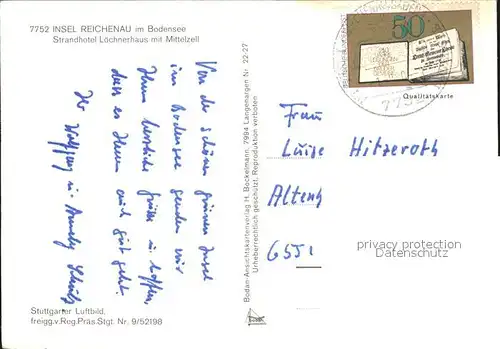 7752 INSEL REICHENAU im Bodensee
Strandhotel Löchnerhaus mit Mittelzell
Von der schönen grünen Insel
im Bodensee senden wir
Ihnen herzliche Grüße u. hoffen,
dass es Ihnen auch gut geht.
Ihr Wolfgang u.
Stuttgarter Luftbild,
freigg.v.Reg.Präs.Stgt. Nr. 9/52198
Bodan-Ansichtskartenverlag H. Bockelmann, 7994 Langenargen Nr. 22-27
Urheberrechtlich geschützt. Reproduktion verboten
50
Qualitätskarte
775
Frau
Luise Hitzeroth
6551
privacy protection
Datenschutz